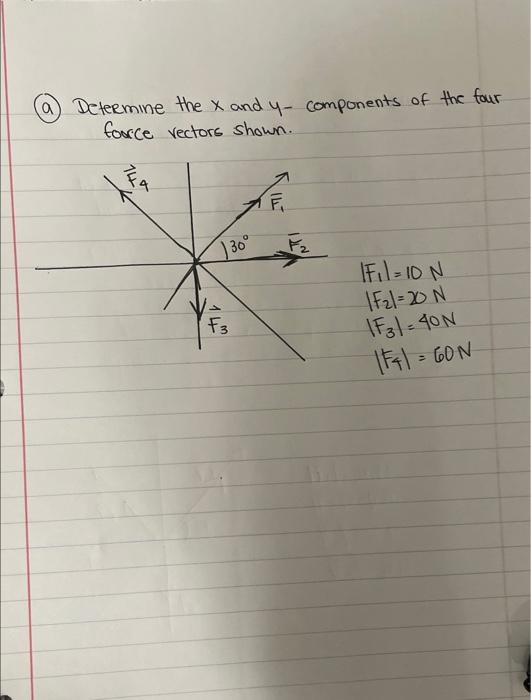 (a) Determine the x and y- components of the four
force vectors shown.
F₄
F₁
30°
F₂
F₃
|F₁| = 10 N
|F₂| = 20 N
|F₃| = 40N
|F₄| = 60N